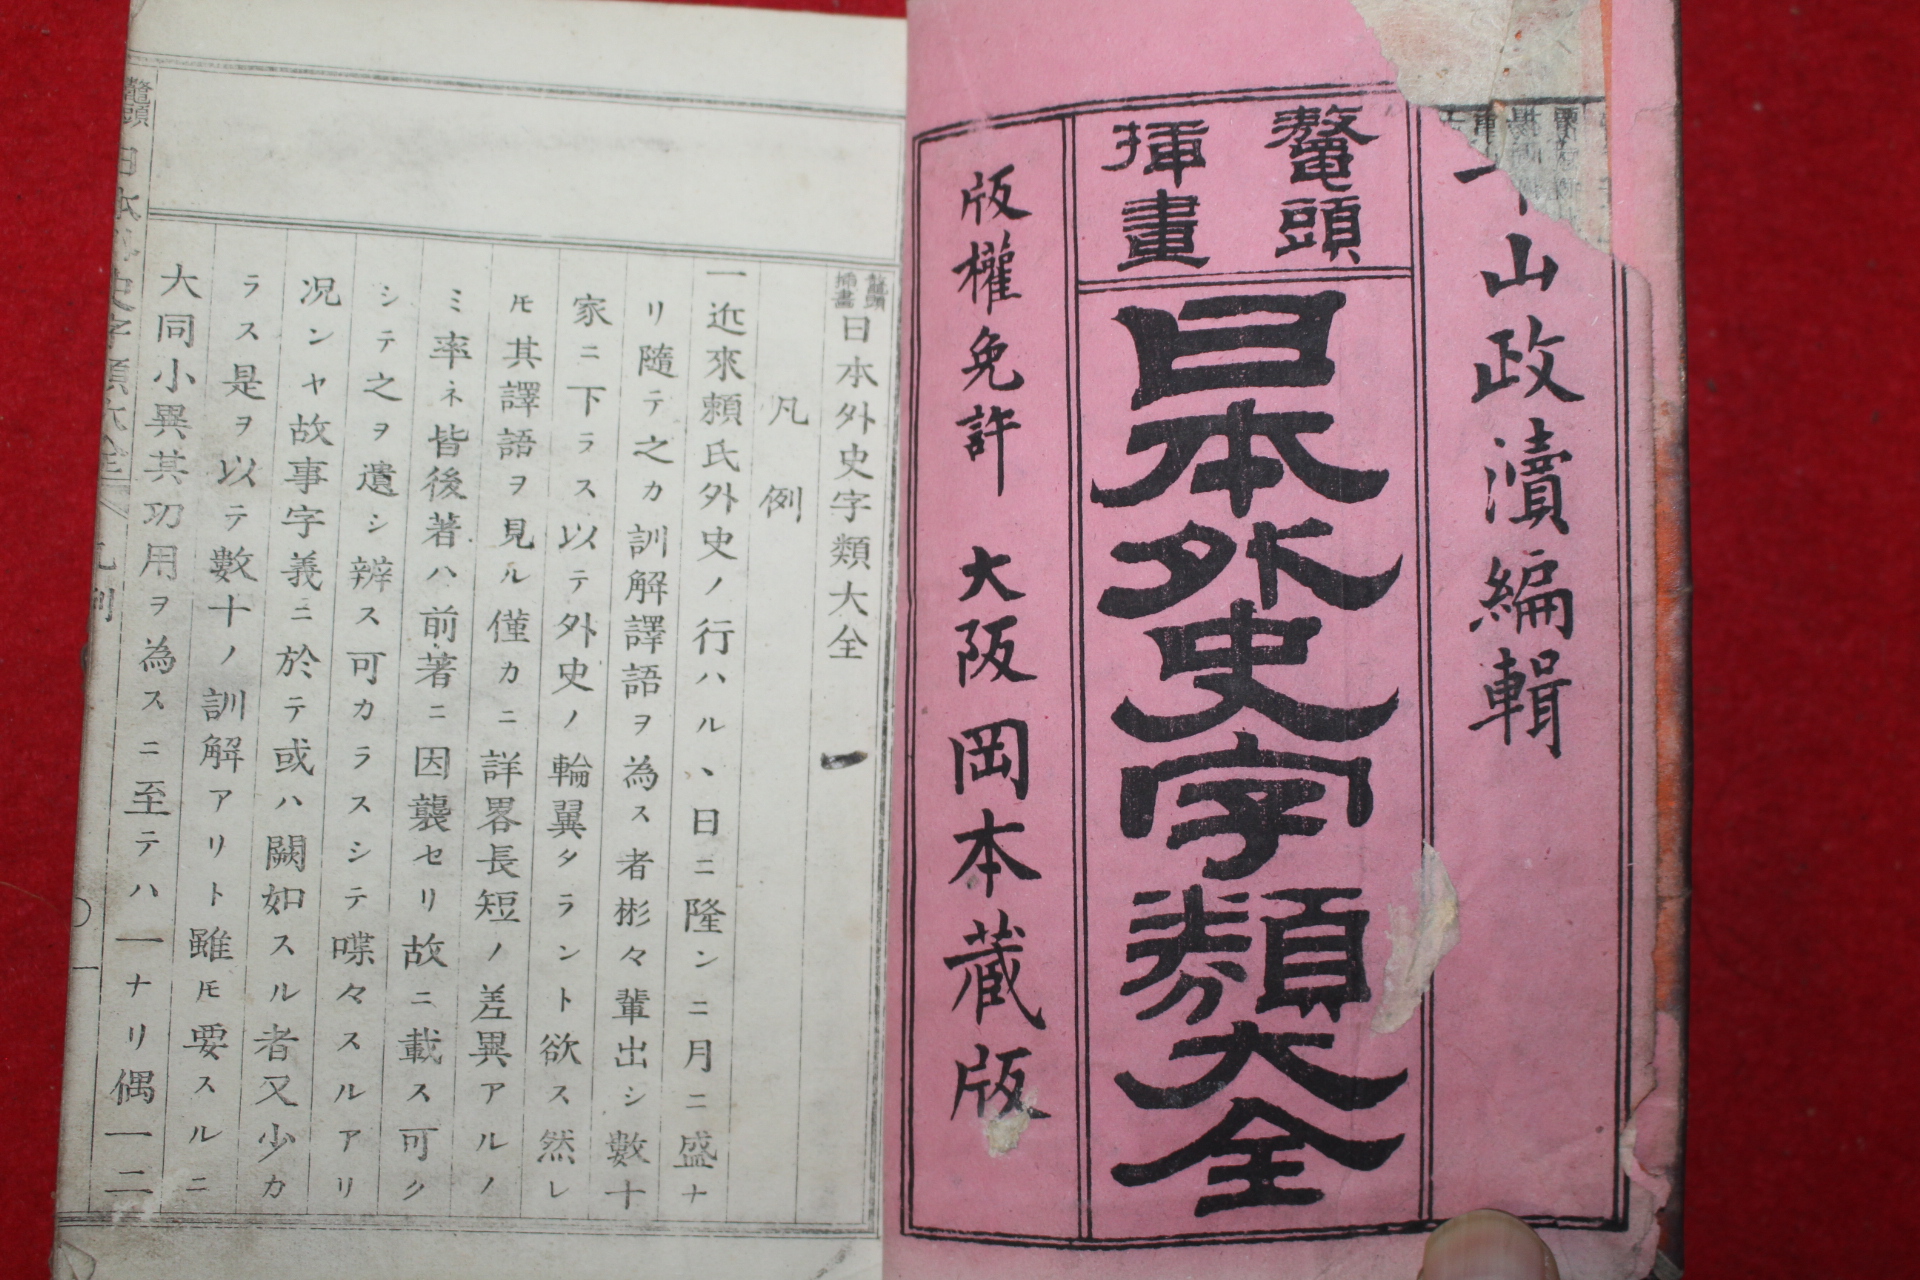 山政瀆編輯
鼇頭
挿畫
日本外史字類大全
版權免許 大阪岡本蔵版
鼇頭
挿畫
日本外史字類大全
凡例
一近來頼氏外史ノ行ハル、日ニ隆ンニ月ニ盛ナ
リ隨テ之カ訓解譯語ヲ為ス者彬々輩出シ數十
家ニ下ラス以テ外史ノ輪翼タラント欲ス然レ
㠪其譯語ヲ見ル僅カニ詳畧長短ノ差異アルノ
ミ率ネ皆後著ハ前著ニ因襲セリ故ニ載ス可ク
シテ之ヲ遺シ辨ス可カラスシテ喋々スルアリ
况ンヤ故事字義ニ於テ或ハ闕如スル者又少カ
ラス是ヲ以テ數十ノ訓解アリト雖㠪要スルニ
大同小異其功用ヲ為スニ至テハ一ナリ偶一二
鼇頭
凡例
一